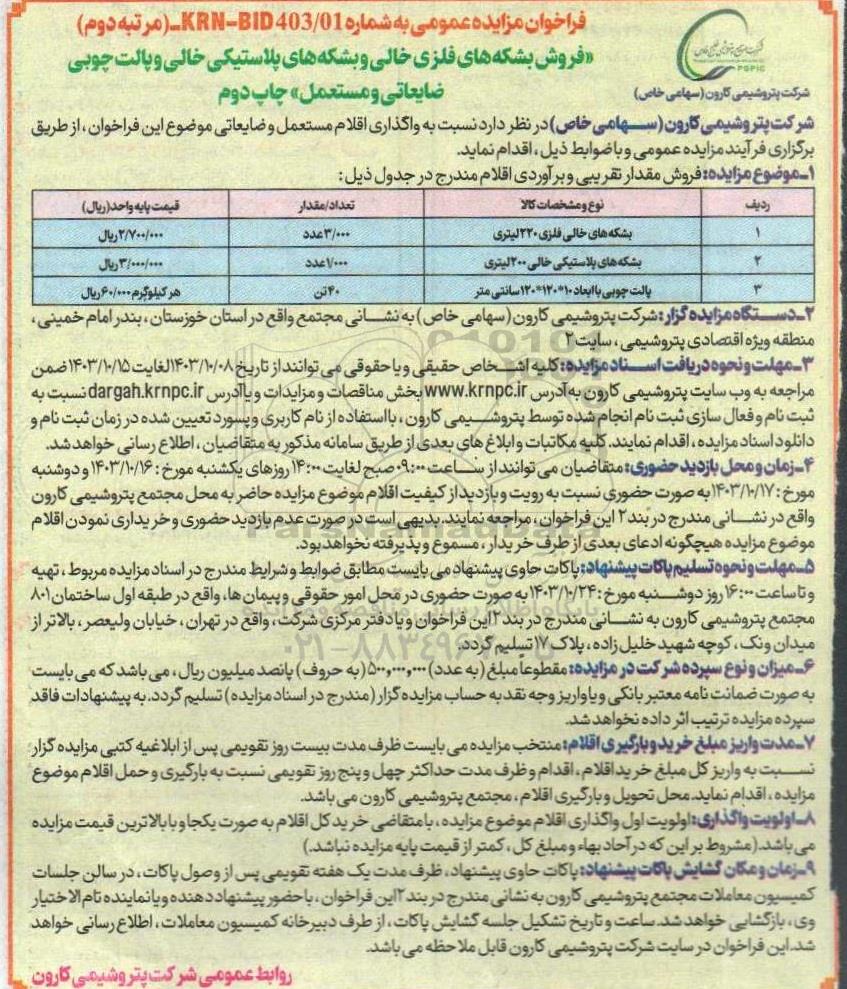 فراخوان مزایده عمومی به شماره KRN-BID 403/01ـ(مرتبه دوم)
«فروش بشکه های فلزی خالی و بشکه های پلاستیکی خالی و پالت چوبی
ضایعاتی و مستعمل» چاپ دوم
PGPIC
شرکت پتروشیمی کارون (سهامی خاص)
شرکت پتروشیمی کارون (سهامی خاص) در نظر دارد نسبت به واگذاری اقلام مستعمل و ضایعاتی موضوع این فراخوان ، از طریق
برگزاری فرآیند مزایده عمومی و با ضوابط ذیل ، اقدام نماید.
۱ـ موضوع مزایده: فروش مقدار تقریبی و برآوردی اقلام مندرج در جدول ذیل:
ردیف نوع و مشخصات کالا تعداد/مقدار قیمت پایه واحد (ریال)
۱ بشکه های خالی فلزی ۲۲۰ لیتری ۳/۰۰۰ عدد ۲/۷۰۰/۰۰۰ ریال
۲ بشکه های پلاستیکی خالی ۲۰۰ لیتری ۱/۰۰۰ عدد ۳/۰۰۰/۰۰۰ ریال
۳ پالت چوبی با ابعاد ۱۰*۱۲۰*۱۲۰ سانتی متر ۴۰ تن هر کیلوگرم ۶۰/۰۰۰ ریال
۲ـ دستگاه مزایده گزار: شرکت پتروشیمی کارون (سهامی خاص) به نشانی مجتمع واقع در استان خوزستان ، بندر امام خمینی ،
منطقه ویژه اقتصادی پتروشیمی ، سایت ۲
۳ـ مهلت و نحوه دریافت اسناد مزایده: کلیه اشخاص حقیقی و یا حقوقی می توانند از تاریخ ۱۴۰۳/۱۰/۰۸ لغایت ۱۴۰۳/۱۰/۱۵ ضمن
مراجعه به وب سایت پتروشیمی کارون به آدرس www.krnpc.ir بخش مناقصات و مزایدات و یا آدرس dargah.krnpc.ir نسبت به
ثبت نام و فعال سازی ثبت نام انجام شده توسط پتروشیمی کارون ، با استفاده از نام کاربری و پسورد تعیین شده در زمان ثبت نام و
دانلود اسناد مزایده ، اقدام نمایند. کلیه مکاتبات و ابلاغ های بعدی از طریق سامانه مذکور به متقاضیان ، اطلاع رسانی خواهد شد.
۴ـ زمان و محل بازدید حضوری: متقاضیان می توانند از ساعت ۰۹:۰۰ صبح لغایت ۱۴:۰۰ روزهای یکشنبه مورخ : ۱۴۰۳/۱۰/۱۶ و دوشنبه
مورخ : ۱۴۰۳/۱۰/۱۷ به صورت حضوری نسبت به رویت و بازدید از کیفیت اقلام موضوع مزایده حاضر به محل مجتمع پتروشیمی کارون
واقع در نشانی مندرج در بند ۲ این فراخوان ، مراجعه نمایند. بدیهی است در صورت عدم بازدید حضوری و خریداری نمودن اقلام
موضوع مزایده هیچگونه ادعای بعدی از طرف خریدار ، مسموع و پذیرفته نخواهد بود.
۵ـ مهلت و نحوه تسلیم پاکات پیشنهاد: پاکات حاوی پیشنهاد می بایست مطابق ضوابط و شرایط مندرج در اسناد مزایده مربوط ، تهیه
و تا ساعت ۱۶:۰۰ روز دوشنبه مورخ : ۱۴۰۳/۱۰/۲۴ به صورت حضوری در محل امور حقوقی و پیمان ها، واقع در طبقه اول ساختمان ۸۰۱
مجتمع پتروشیمی کارون به نشانی مندرج در بند ۲ این فراخوان و یا دفتر مرکزی شرکت ، واقع در تهران ، خیابان ولیعصر ، بالاتر از
میدان ونک ، کوچه شهید خلیل زاده ، پلاک ۱۷ تسلیم گردد.
۰۲۱-۸۸۳۴۹۶۷۰
۶ـ میزان و نوع سپرده شرکت در مزایده: مقطوعاً مبلغ (به عدد) ۵۰۰,۰۰۰,۰۰۰ (به حروف) پانصد میلیون ریال ، می باشد که می بایست
به صورت ضمانت نامه معتبر بانکی و یا واریز وجه نقد به حساب مزایده گزار (مندرج در اسناد مزایده) تسلیم گردد. به پیشنهادات فاقد
سپرده مزایده ترتیب اثر داده نخواهد شد.
۷ـ مدت واریز مبلغ خرید و بارگیری اقلام: منتخب مزایده می بایست ظرف مدت بیست روز تقویمی پس از ابلاغیه کتبی مزایده گزار
نسبت به واریز کل مبلغ خرید اقلام ، اقدام و ظرف مدت حداکثر چهل و پنج روز تقویمی نسبت به بارگیری و حمل اقلام موضوع
مزایده ، اقدام نماید. محل تحویل و بارگیری اقلام ، مجتمع پتروشیمی کارون می باشد.
۸ـ اولویت واگذاری: اولویت اول واگذاری اقلام موضوع مزایده ، با متقاضی خرید کل اقلام به صورت یکجا و با بالاترین قیمت مزایده
می باشد. (مشروط بر این که در آحاد بهاء و مبلغ کل ، کمتر از قیمت پایه مزایده نباشد.)
۹ـ زمان و مکان گشایش پاکات پیشنهاد: پاکات حاوی پیشنهاد ، ظرف مدت یک هفته تقویمی پس از وصول پاکات ، در سالن جلسات
کمیسیون معاملات مجتمع پتروشیمی کارون به نشانی مندرج در بند ۲ این فراخوان ، با حضور پیشنهاد دهنده و یا نماینده تام الاختیار
وی ، بازگشایی خواهد شد. ساعت و تاریخ تشکیل جلسه گشایش پاکات ، از طرف دبیرخانه کمیسیون معاملات ، اطلاع رسانی خواهد
شد. این فراخوان در سایت شرکت پتروشیمی کارون قابل ملاحظه می باشد.
روابط عمومی شرکت پتروشیمی کارون